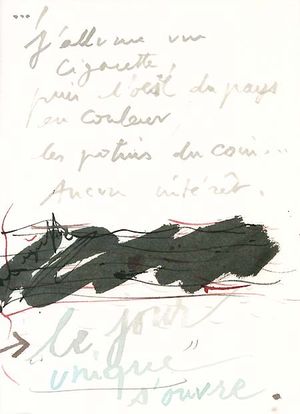 ...
J'allume un
cigarette,
puis l'oeil du pays
en couleur,
les potins du coin...
Aucun intérêt.
le jour
unique
s'ouvre.